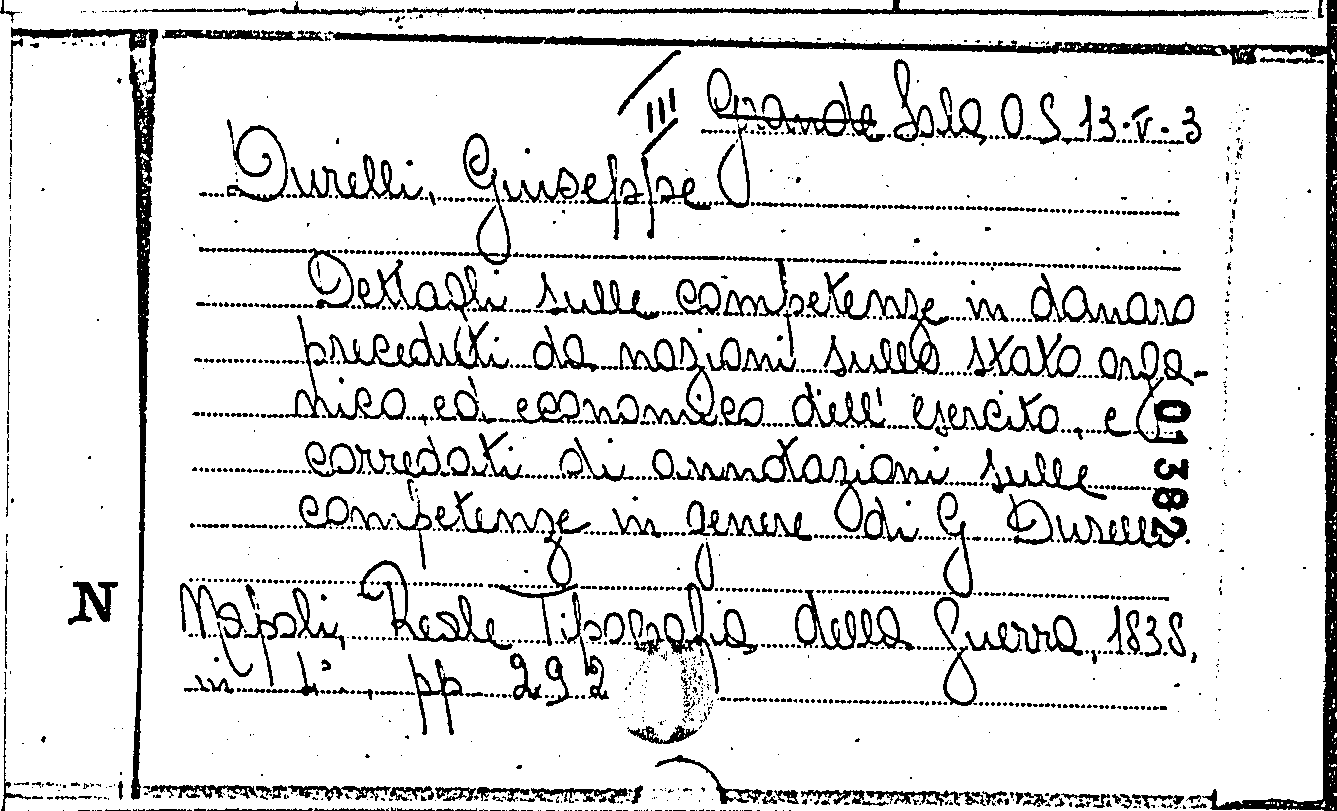 III Grande Sala O S 13-V-3
Durelli, Giuseppe
Dettagli sulle competenze in danaro
preceduti da nozioni sullo stato orga-
nico, ed economico dell' esercito, e
corredati di annotazioni sulle
competenze in genere di G Durelli.
01382
N
Napoli, Reale Tipografia della Guerra, 1838,
in pp 292